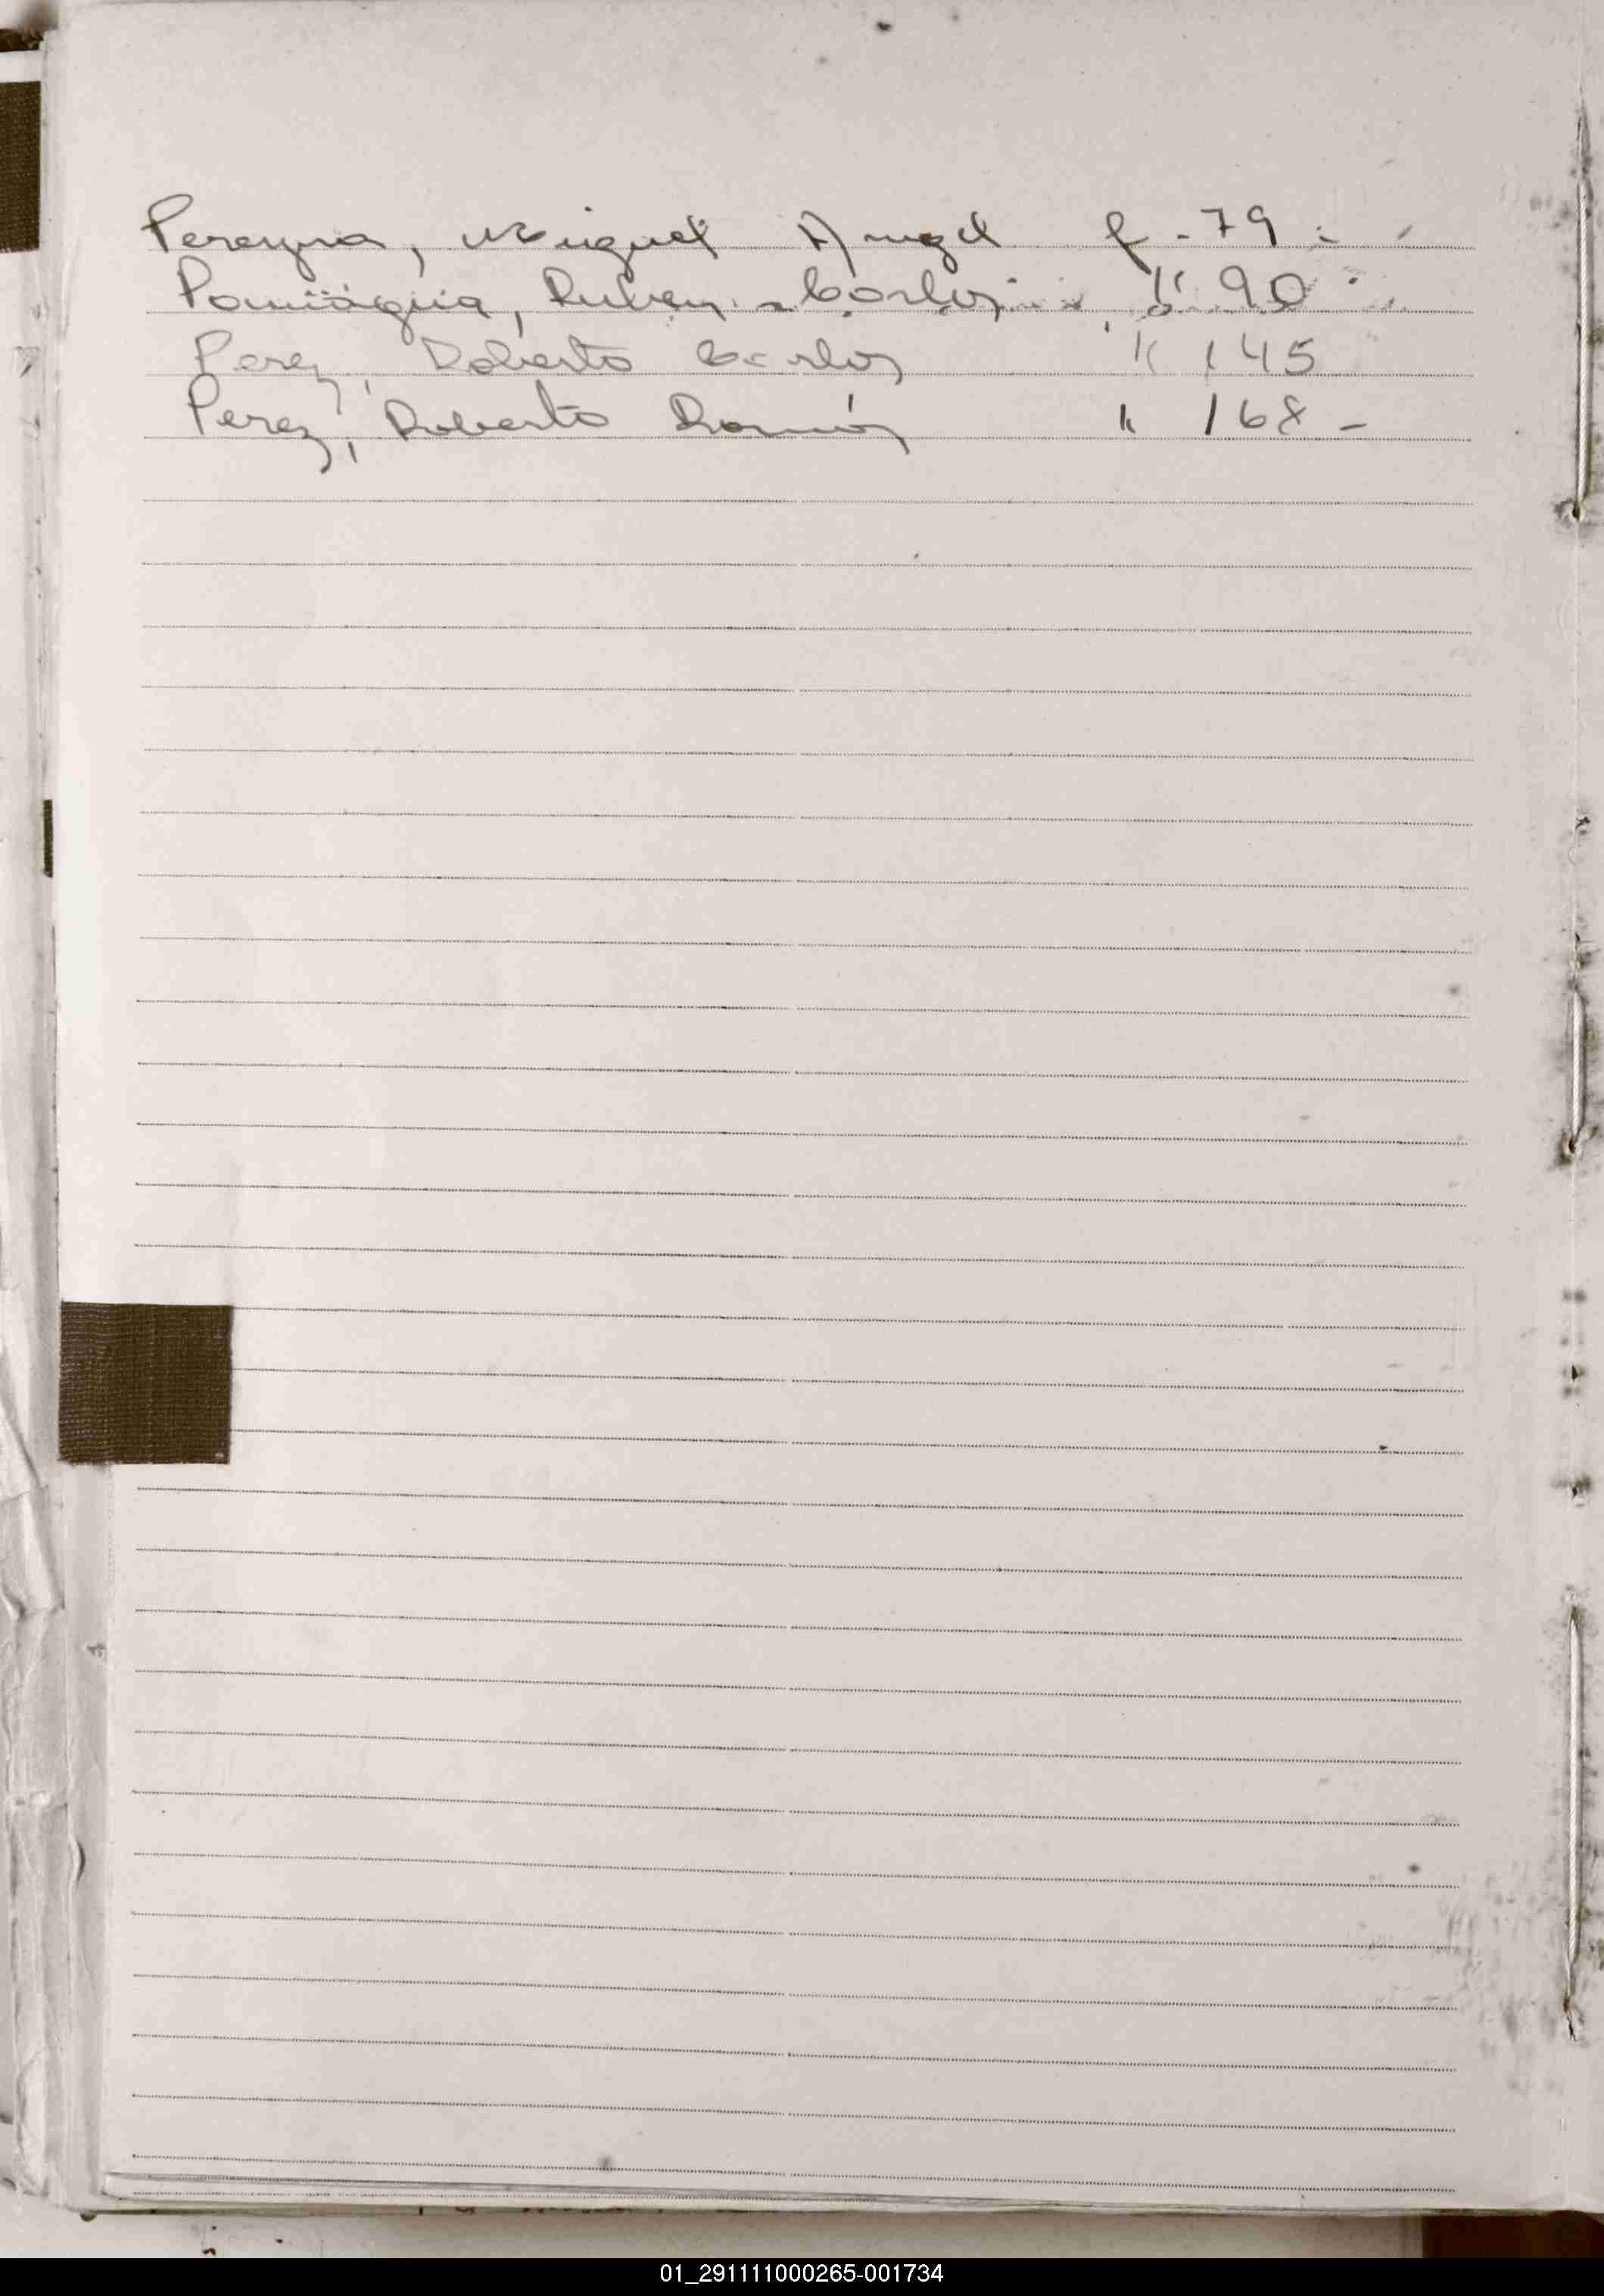 Pereyra, Miguel Angel f. 79 -
Paniagua, Ruben Carlos " 90
Perez, Roberto Carlos " 145
Perez, Roberto Ramón " 168 -
01_291111000265-001734